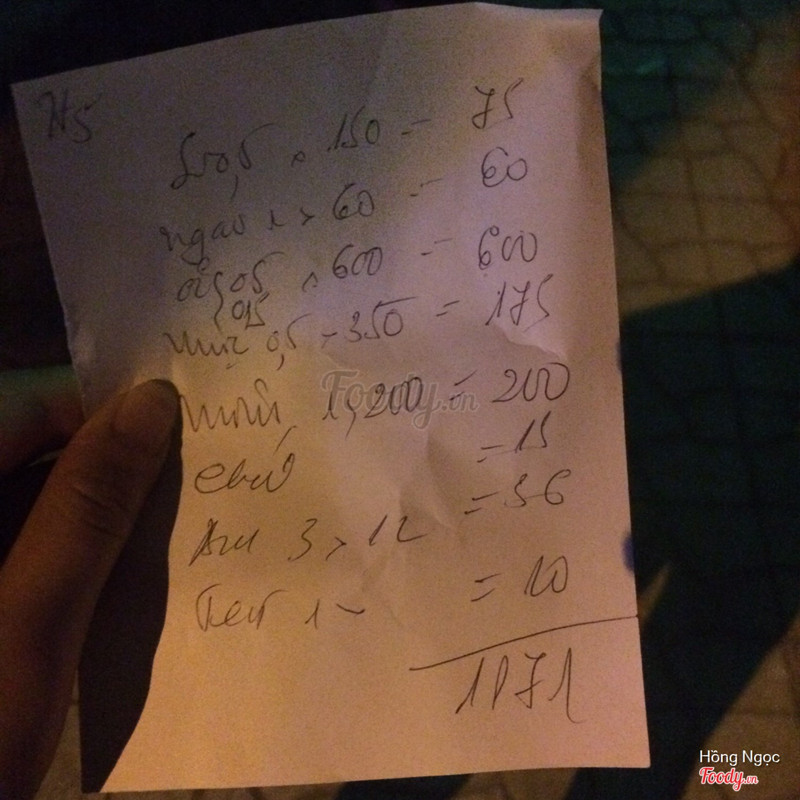 H5
0,5 × 150 = 75
ngao 1 × 60 = 60
ốc 05 × 600 = 600
05
mực 0,5 × 350 = 175
1 × 200 = 200
= 15
3 × 12 = 36
Ken 1 = 10
1171
Foody.vn
Hồng Ngọc
Foody.vn